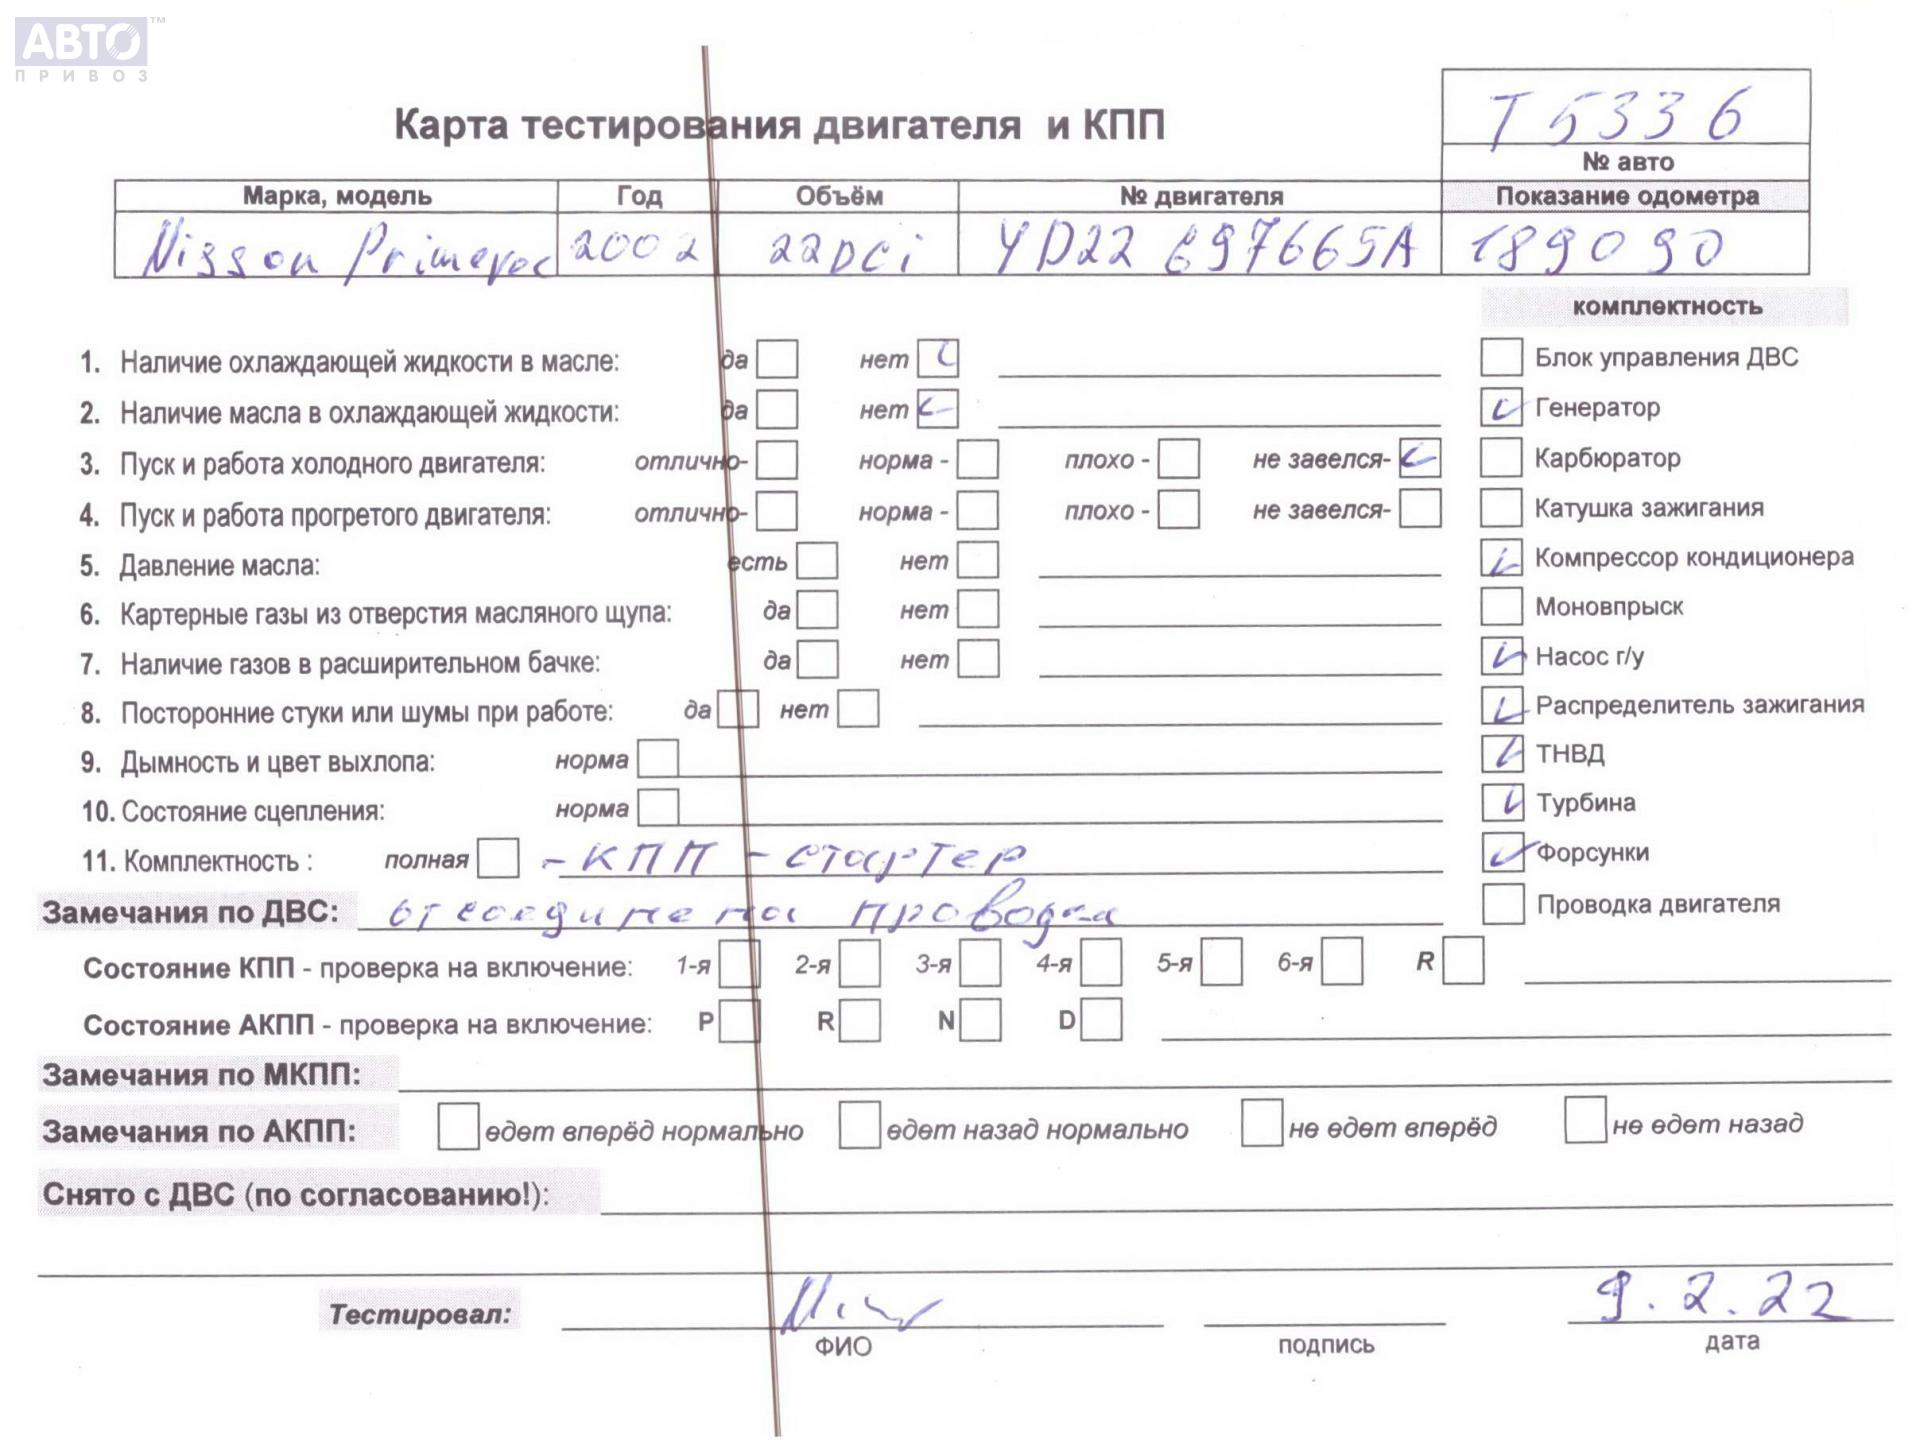 АВТО™
ПРИВОЗ
Т 5336
Карта тестирования двигателя и КПП
№ авто
Марка, модель Год Объём № двигателя Показание одометра
Nissan Primera 2002 22DCi YD22 697665A 189090
комплектность
1. Наличие охлаждающей жидкости в масле: да нет Блок управления ДВС
2. Наличие масла в охлаждающей жидкости: да нет Генератор
3. Пуск и работа холодного двигателя: отлично- норма - плохо - не завелся- Карбюратор
4. Пуск и работа прогретого двигателя: отлично- норма - плохо - не завелся- Катушка зажигания
5. Давление масла: есть нет Компрессор кондиционера
6. Картерные газы из отверстия масляного щупа: да нет Моновпрыск
7. Наличие газов в расширительном бачке: да нет Насос г/у
8. Посторонние стуки или шумы при работе: да нет Распределитель зажигания
9. Дымность и цвет выхлопа: норма ТНВД
10. Состояние сцепления: норма Турбина
11. Комплектность : полная - КПП - стартер Форсунки
Замечания по ДВС: отсоединена проводка Проводка двигателя
Состояние КПП - проверка на включение: 1-я 2-я 3-я 4-я 5-я 6-я R
Состояние АКПП - проверка на включение: P R N D
Замечания по МКПП:
Замечания по АКПП: едет вперёд нормально едет назад нормально не едет вперёд не едет назад
Снято с ДВС (по согласованию!):
Тестировал: 9.2.22
ФИО подпись дата